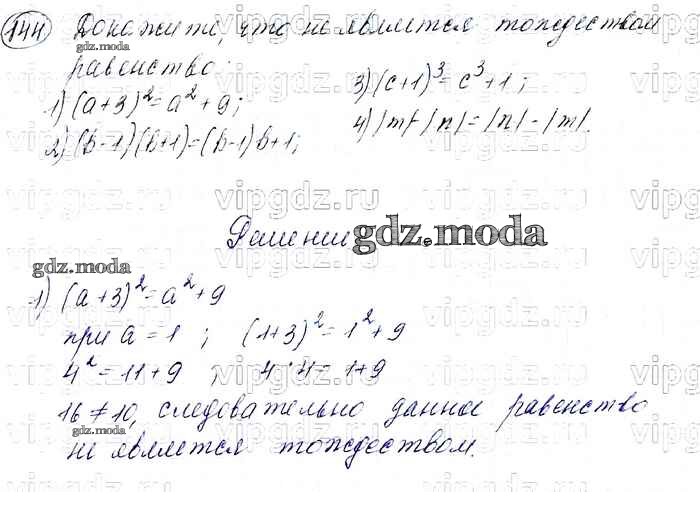 144 Докажите, что не является тождеством
gdz.moda
равенство:
1) (a+3)² = a² + 9;
3) (c+1)³ = c³ + 1;
2) (b-1)(b+1) = (b-1)b+1;
4) |m|-|n| = |n|-|m|.
vipgdz.ru
Решение
gdz.moda
gdz.moda
1) (a+3)² = a² + 9
при a = 1 ; (1+3)² = 1² + 9
4² = 11 + 9 ; 4·4 = 1+9
16 ≠ 10, следовательно данное равенство
gdz.moda
не является тождеством.